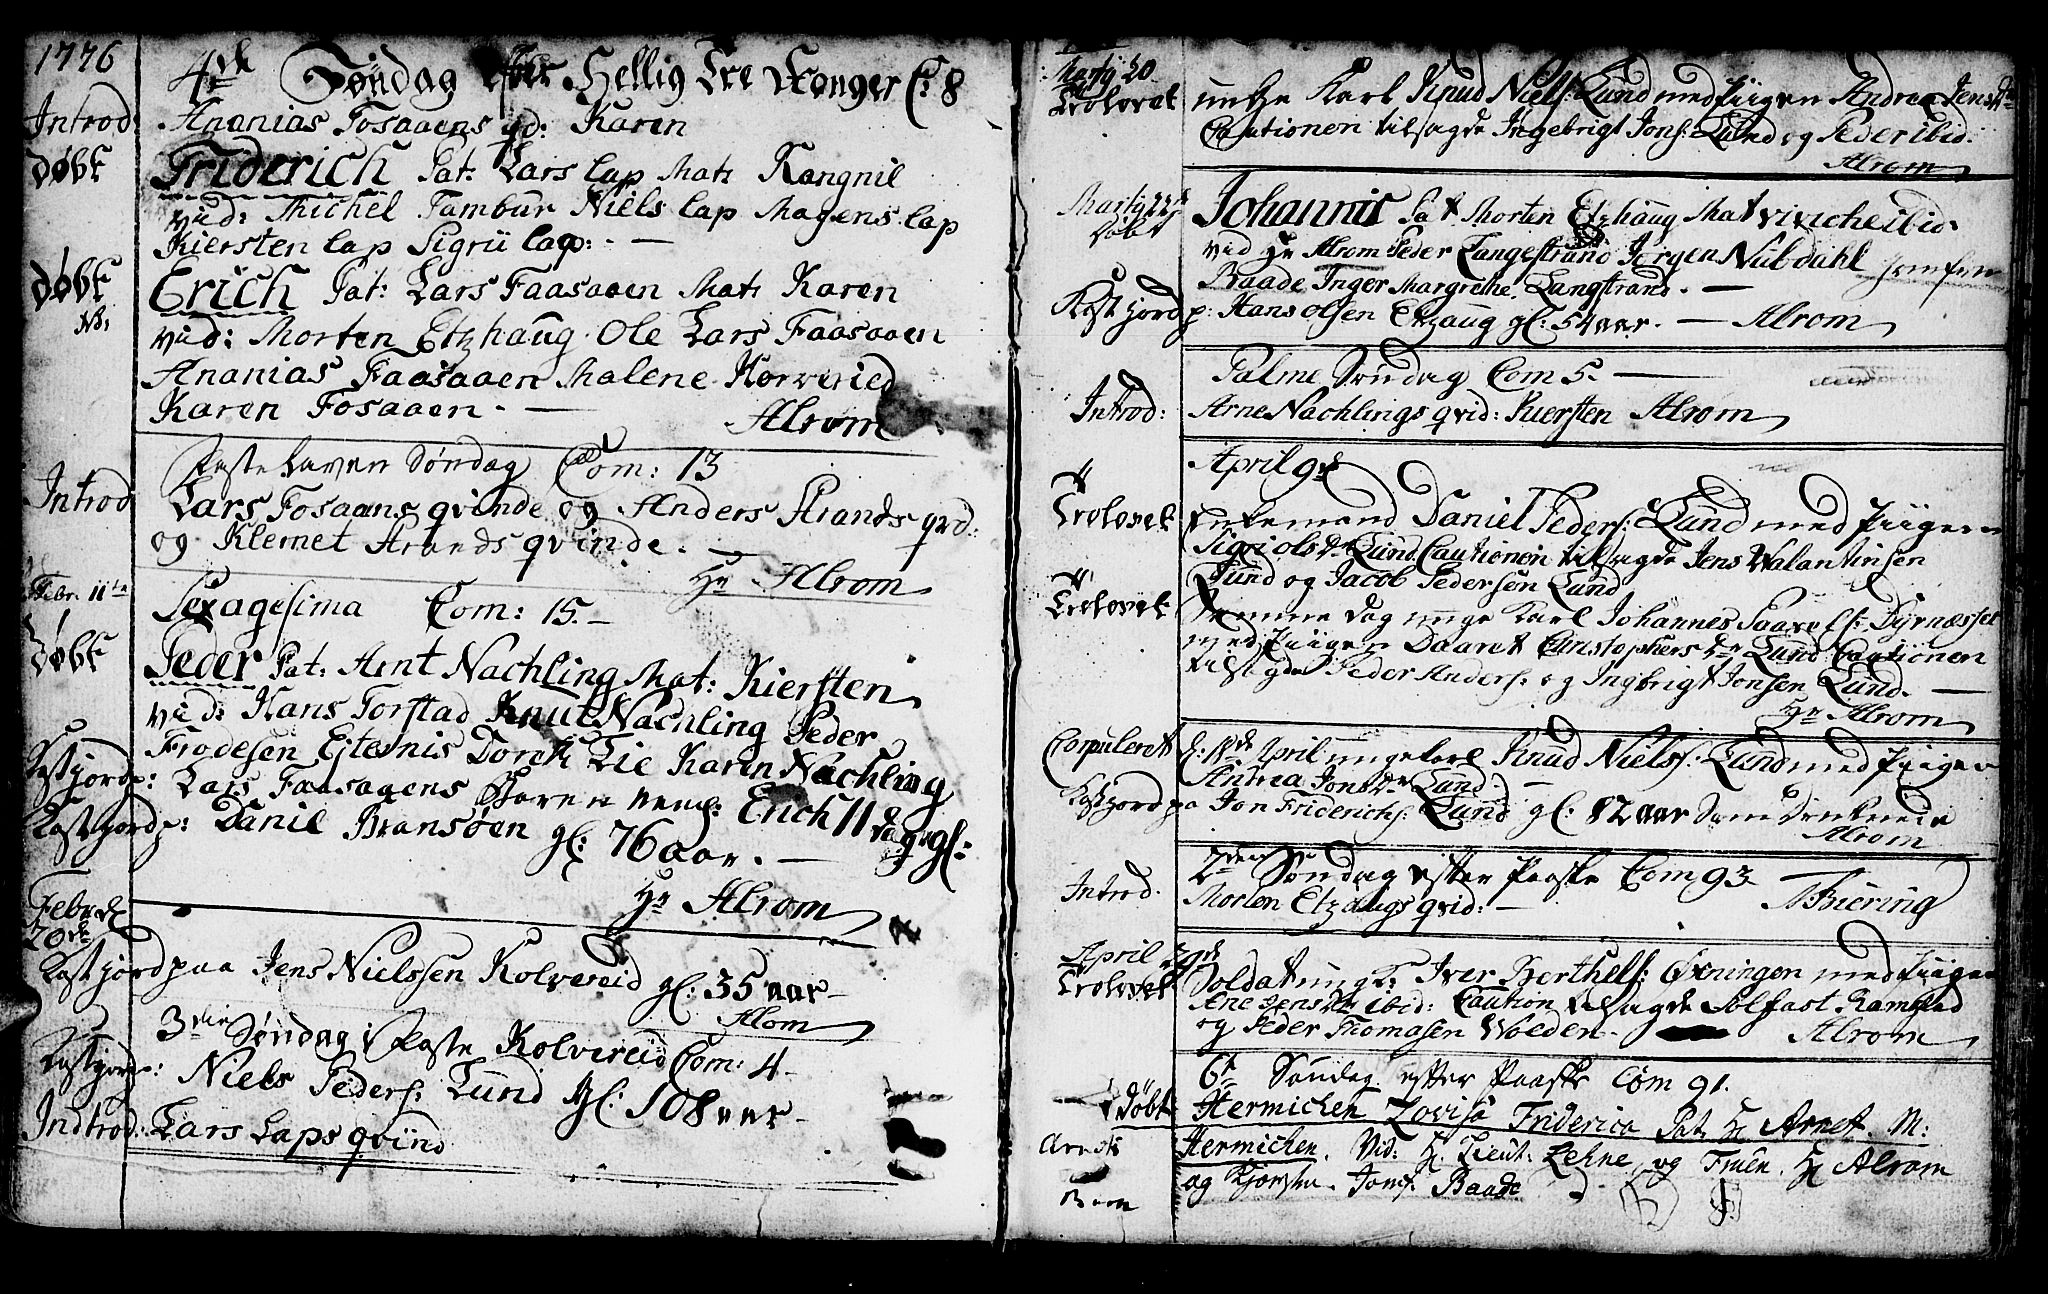 1776
4de Søndag efter Hellig Tre Konger C: 8
Introd: Ananias Fosaaens qd: Karen
døbt Friderich Pat: Lars Lap Mat: Rangnil
vid: Michel Tambur Niels Lap Magens Lap
Kiersten Lap Sigrü Lap: -
døbt Erich Pat: Lars Faasaaen Mat: Karen
NB:
vid: Morten Etzhaüg Ole Lars Faasaaen
Ananias Faasaaen Malene Kolveried
Karen Fosaaen. -
Alrom
Fastelaven Søndag Com: 13
Introd Lars Fosaaens qvinde og Anders Strands qvd:
og Klemet Strands qvinde.
Hr Alrom
Febr. 11te Sexagesima Com: 15. -
Døbt Peder Pat: Arnt Nachling Mat: Kiersten
vid: Hans Torstad Knut Nachling Peder
Frodesen Karen Nachling
Kastjordp: Lars Faasaaens Barn neml: Erich 11 dage gl:
Kastjordp: Danil Bransøen gl: 76 aar. -
Hr Alrom
Febr. d
20de
Kastjordpaa Jens Nielssen Kolvereid gl: 35 aar -
Alrom
3die Søndag i Faste Kolvereid Com: 4 -
Kastjordp: Niels Peders: Lünd gl: 108 aar -
Indtrod: Lars Laps qviind
Martij 20.
Trolovet unge Karl Knud Niels: Lund med Piigen Andrea Jens
Cautionen tilsagde Ingebrigt Jons: Lund og Peder ibid:
Alrom
Martij 22de Døbt
Johannis Pat Morten Etzhaug Mat vivicke ibid:
vid Hr Alrom Peder Langestrand Jørgen Nübdahl Jomfrue
Baade Inger Margrethe Langstrand. -
Kastjordp: Hans Olsen Etzaug gl: 54 aar. - Alrom
Palme Søndag Com 5. -
Introd: Arne Nachlings qvid: Kiersten Alrom
April 9d
Trolovet Enkemand Daniel Peders: Lünd med Piigen
Sigri Ols dr Lünd Cautionen tilsagde Jens Walantinsen
Lund og Jacob Pedersen Lund
Trolovet Samme dag unge Karl Johannes Dyrnæsset
med Piigen Daaret Christophers dr Lünd Cautionen
tilsagde Peder Anders: og Ingbrigt Jonsen Lünd. -
Hr Alrom
Copuleret April unge Karl Knud Niels: Lünd med Piigen
Andrea Jons dr Lünd. -
Kastjordpaa Jon Friderichs: Lünd gl: 82 aar
Alrom
2den Søndag efter Paaske Com 93
Introd. Morten Etzaugs qvid: - Biering
April 29de
Trolovet Soldat ung K: Iver Berthels: Øxningen med Piigen
Ane Jens dr ibid: Caution tilsagde Solfast Ramstad
og Peder Thomasen Woeden. - Alrom
6te Søndag efter Paaske Com 91.
Døbt Hermichen Lovisa Friderica Pat. H Arnet. M:
Arndts Hermichen. Vid: H. Lieut: Lehne og Fruen. H Alrom
Barn og Kjærste. Jomf: Baade